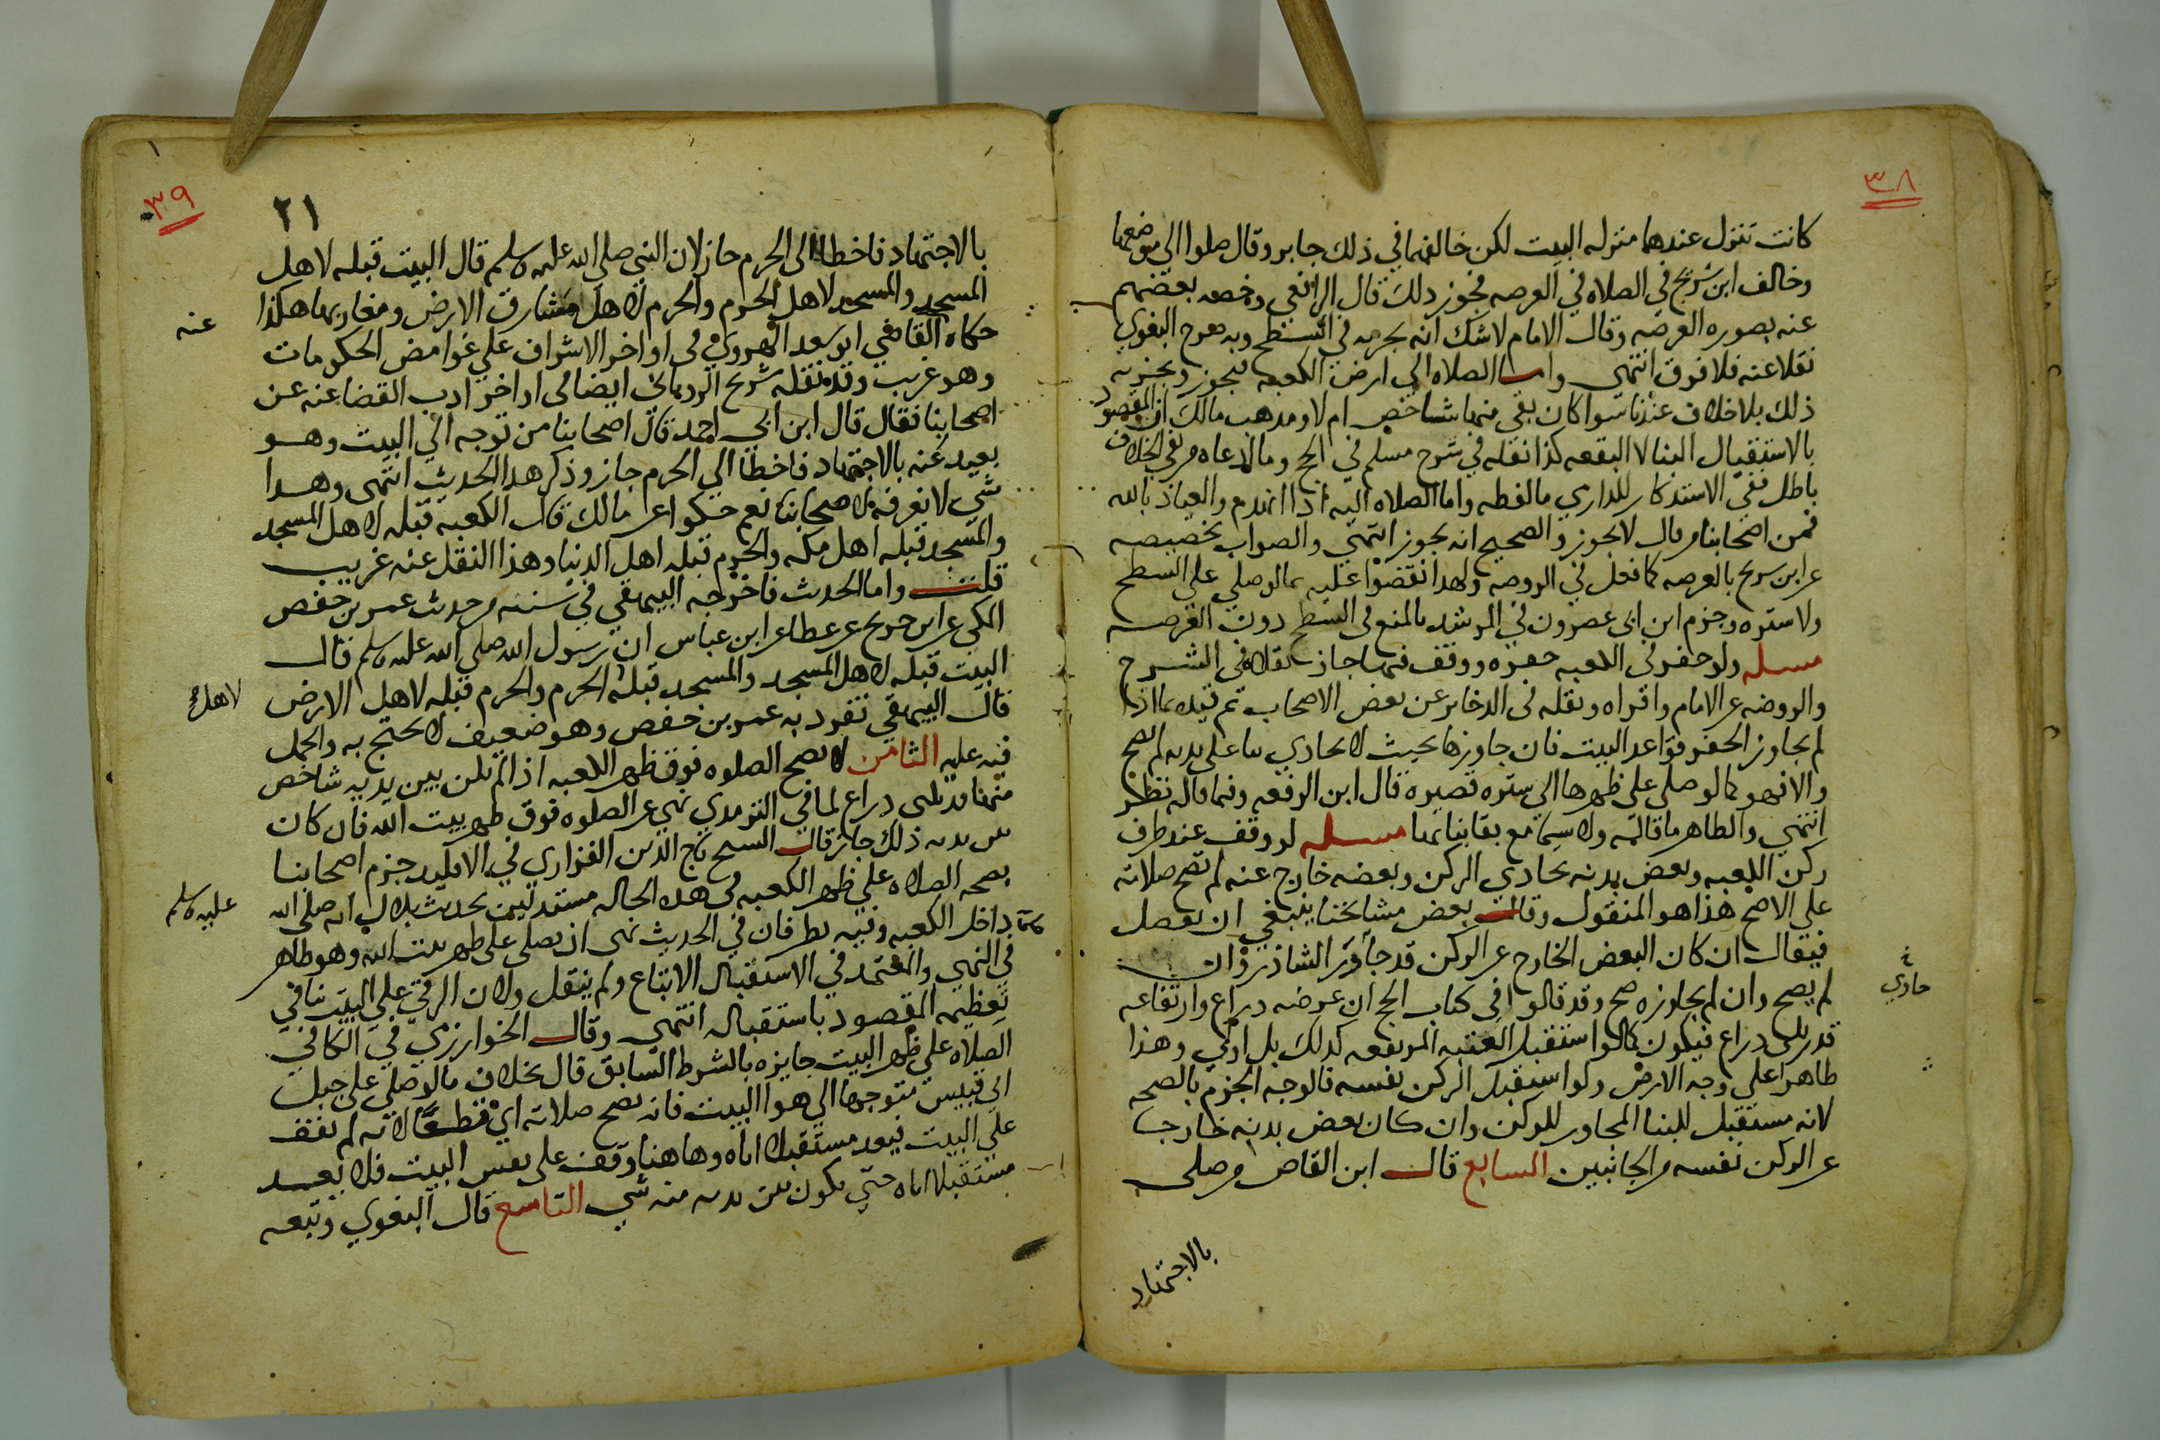 ٣٨
كانت تنزل عندها منزله البيت لكن خالفهما في ذلك جابر وقال صلوا الي موضعها
وخالف ابن سريج في الصلاه في العرصه فجوز ذلك قال الرافعي وخصه بعضهم
عنه بصوره العرصه وقال الامام لاشك انه يجريه في السطح وبه صرح البغوي
نقلا عنه فلا فرق انتهي واما الصلاه الي ارض الكعبه فيجوز ويجزيه
ذلك بلا خلاف عندنا سوا كان بقي منها شاخص ام لا ومذهب مالك ان المقصود
بالاستقبال البنا لا البقعه كذا نقله في شرح مسلم في الحج وما ادعاه من نفي الخلاف
باطل ففي الاستذكار للدارمي ما لفظه واما الصلاه اليه اذا انهدم والعياذ بالله
فمن اصحابنا من قال لا يجوز والصحيح انه يجوز انتهي والصواب تخصيصه
عن ابن سريج بالعرصه كما فعل في الروضه ولهذا نقضوا عليه بما لو صلي علي السطح
ولا ستره وجزم ابن ابي عصرون في المرشد بالمنع في السطح دون العرصه
مسله ولو حفر في الكعبه حفره ووقف فيها جاز نقلاه في الشرح
والروضه عن الامام واقراه ونقله في الذخاير عن بعض الاصحاب ثم قيده بما اذا
لم يجاوز الحفر قواعد البيت فان جاوزها بحيث لا يحاذي بنا علي بدنه لم يصح
والا فهو كما لو صلي علي ظهرها الي ستره قصيره قال ابن الرفعه وفيما قاله نظر
انتهي والظاهر ما قاله ولا سيما مع بقا بنايها مسله لو وقف عند طرف
ركن الكعبه وبعض بدنه يحاذي الركن وبعضه خارج عنه لم تصح صلاته
علي الاصح هذا هو المنقول وقال بعض مشايخنا ينبغي ان يفصل
فيقال ان كان البعض الخارج عن الركن قد جاوز الشاذروان
لم يصح وان لم يجاوزه صح وقد قالوا في كتاب الحج ان عرضه دراع وارتفاعه
حاذي
قدر ثلثي دراع فيكون كما لو استقبل العتبه المرتفعه كذلك بل اولي وهذا
ظاهر علي وجه الارض ولو استقبل الركن نفسه فالوجه الجزم بالصحه
لانه مستقبل للبنا المجاور للركن وان كان بعض بدنه خارجا
عن الركن نفسه من الجانبين السابع قال ابن القاص من صلي
بالاجتهاد
٣٩
٢١
بالاجتهاد فاخطا الي الحرم جاز لان النبي صلي الله عليه وسلم قال البيت قبله لاهل
المسجد والمسجد لاهل الحرم والحرم لاهل مشارق الارض ومغاربها هكذا
حكاه القاضي ابو سعد الهروي في اواخر الاشراف علي غوامض الحكومات
عنه
وهو غريب وقد نقله شريح الروياني ايضا في اواخر ادب القضا عنه عن
اصحابنا فقال قال ابن ابي احمد قال اصحابنا من توجه الي البيت وهو
بعيد عنه بالاجتهاد فاخطا الي الحرم جاز وذكر هذا الحديث انتهي وهذا
شي لا نعرفه لاصحابنا نعم حكوا عن مالك قال الكعبه قبله لاهل المسجد
والمسجد قبله اهل مكه والحرم قبله اهل الدنيا وهذا النقل عنه غريب
قلت واما الحديث فاخرجه البيهقي في سننه من حديث عمر بن حفص
المكي عن ابن جريج عن عطا عن ابن عباس ان رسول الله صلي الله عليه وسلم قال
البيت قبله لاهل المسجد والمسجد قبله الحرم والحرم قبله لاهل الارض
لاهل
قال البيهقي تفرد به عمر بن حفص وهو ضعيف لا يحتج به والحمل
فيه عليه الثامن لا يصح الصلوه فوق ظهر الكعبه اذا لم يكن بين يديه شاخص
منها قدر ثلثي دراع لما في الترمذي نهي عن الصلوه فوق ظهر بيت الله فان كان
بين يديه ذلك جاز قال الشيخ تاج الدين الفزاري في الاقليد جزم اصحابنا
بصحه الصلاه علي ظهر الكعبه في هذه الحاله مستدلين بحديث بلال انه صلي الله
عليه وسلم
داخل الكعبه وفيه نظر فان في الحديث نهي ان يصلي علي ظهر بيت الله وهو ظاهر
في النهي والمعتمد في الاستقبال الاتباع ولم ينقل ولان الرقي علي البيت ينافي
تعظيمه المقصود باستقباله انتهي وقال الخوارزمي في الكافي
الصلاه علي ظهر البيت جايزه بالشرط السابق قال بخلاف ما لو صلي علي جبل
ابي قبيس متوجها الي هوا البيت فانه تصح صلاته اي قطعا لانه لم يقف
علي البيت فيعد مستقبلا اياه وها هنا وقف علي نفس البيت فلا يعد
مستقبلا اياه حتي يكون بين يديه منه شي التاسع قال البغوي وتبعه